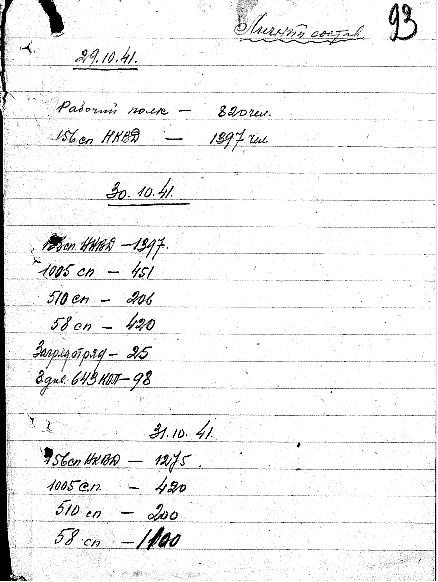 93
Личный состав
29.10.41.
Рабочий полк — 820 чел.
156 сп НКВД — 1397 чел
30.10.41.
156 сп НКВД — 1397.
1005 сп — 451
510 сп — 206
58 сп — 420
Заградотряд — 25
3 див. 643 КАП — 98
31.10.41.
156 сп НКВД — 1275.
1005 сп. — 420
510 сп — 200
58 сп —